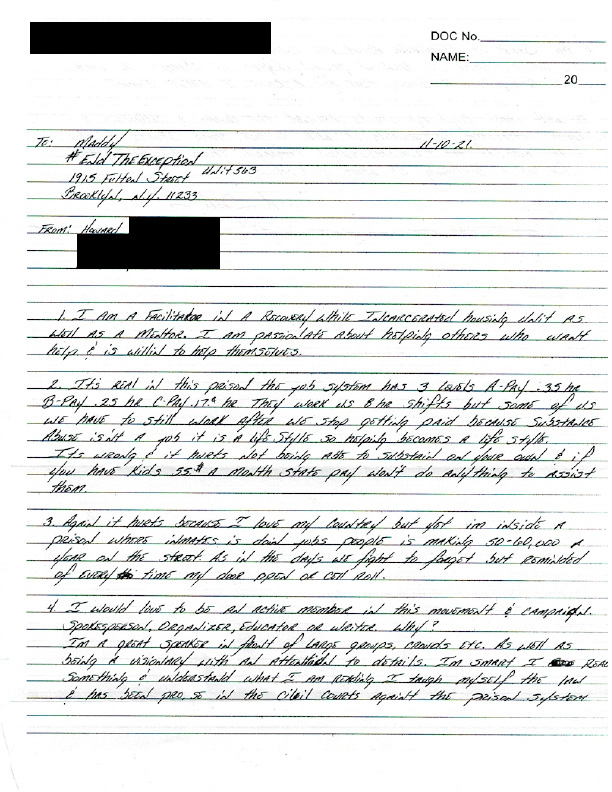 DOC No.
NAME:
20
To: Maddy 11-10-21.
# End The Exception
1915 Fulton Street Unit 563
Brooklyn, N.Y. 11233
From: Howard
1. I am a Facilitator in a Recovery While Incarcerated housing unit as
well as a Mentor. I am passionate about helping others who want
help & is willin to help themselves.
2. It's real in this prison the job system has 3 levels A-Pay .35 hr
B-Pay .25 hr C-Pay .17¢ hr They work us 8 hr shifts but some of us
we have to still work after we stop getting paid because substance
Abuse isn't a job it is a life style so helping becomes a life style.
Its wrong & it hurts not being able to substain on your own & if
you have kids 55$ a month state pay won't do anything to assist
them.
3. Again it hurts because I love my country but yet im inside a
prison where inmates is doin jobs people is making 50-60,000 a
year on the street as in the days we fight to forget but reminded
of every time my door open or cell roll.
4. I would love to be an active member in this movement & campaign.
Spokesperson, Organizer, Educator or Writer. Why?
I'm a great speaker in front of large groups, crowds etc. As well as
being a visionary with an attention to details. I'm smart I read
something & understand what I am reading I taugh myself the law
& has been pro, se in the civil courts againt the prison system